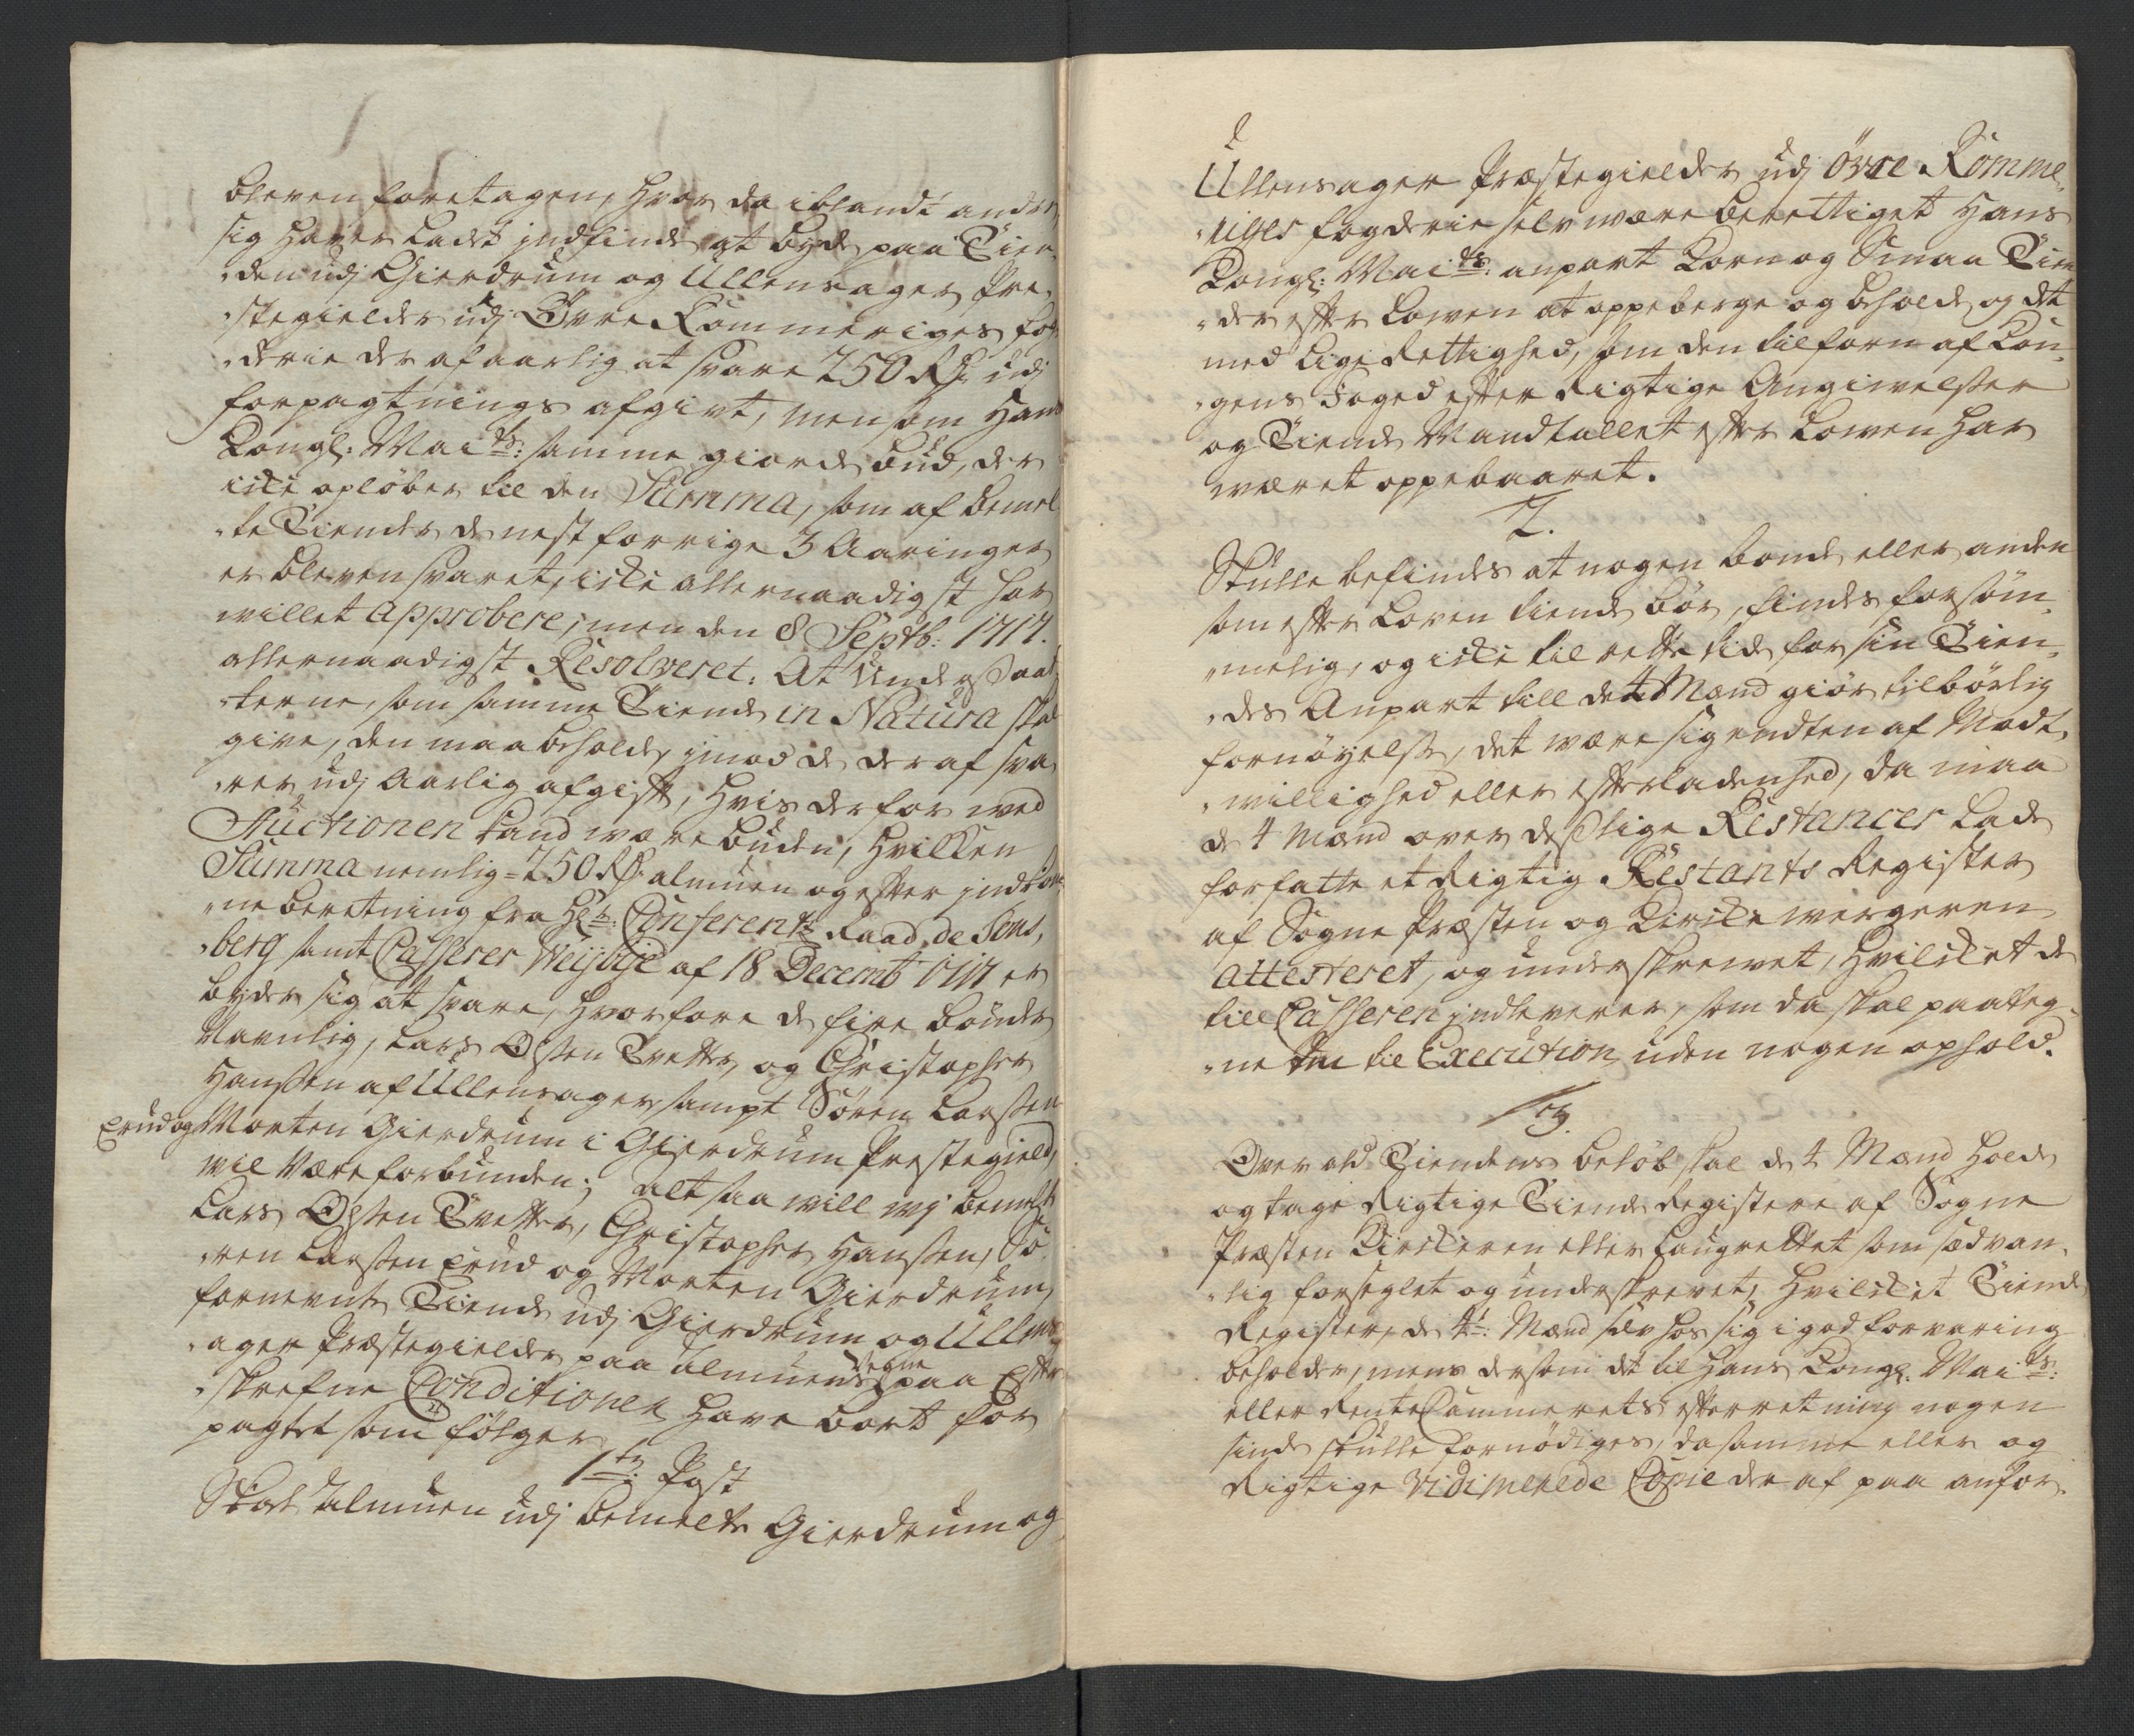 bleven foretagen, hvor da iblandt andre
sig haver ladet indfinde at byde paa Tien-
„den udj Gierdrum og Ullensager Præ-
„stegielder udj Øvre Rommeriges fog-
„derie der af aarlig at svare 250 Rdr udj
forpagtnings afgivt, men som Hans
Kongl: Maits: samme giorde bud, der
icke opløber til den Summa, som af bemel
„te Tiender de nest forrige 3 Aaringer
er bleven svaret, icke allernaadigst har
villet approbere; men den 8 Septb: 1717.
allernaadigst Resolveret: At Undersaat
„terne, som samme Tiende in Natura skal
give, den maa beholde, imod de deraf sva
„rer udj Aarlig afgift, hvis derfor ved
Auctionen kand være buden, hvilken
Summa nemlig = 250 Rdr almuen og efter indkom
„ne beretning fra Hr: Conferentz Raad de Tons-
„berg samt Casserer Weÿbÿe af 18 Decemb 1717 er
byder sig at svare, hvorfore de fire bønder
Navnlig, Lars Olsen Tveter, og Christopher
Hanssen af Ullensager, sampt Søren Larssen
Erud og Morten Gierdrum i Gierdrum Prestegield,
vil være forbunden; Altsaa will wj bemelte
Lars Olsen Tvetter, Christopher Hanssen, Sø-
„ren Larssen Erud og Morten Gierdrum,
fornevnte Tiende udj Gierdrum og Ullens
„ager Præstegielder paa Almuens vegne paa Efter
„skrefne Conditioner have bort for
pagtet som følger
1te: Post
Skal Almuen udj bemelte Gierdrum og
Ullensager Præstegielder udj Øvre Romme-
„riges fogderie selv være berettiget Hans
Kongl: Maits: anpart Korn og Smaa Tien
„der efter Lowen at oppeberge og beholde og det
med lige Rettighed, som den tilforn af Kon-
„gens Foged efter rigtige Angivelser
og Tiende Mandtallet efter Lowen har
været oppebaaret.
2.
Skulle befindes at nogen bonde eller anden
som efter Loven tiende bør, findes forsøm-
„melig, og icke til rette tid for sin Tien-
„des Anpart till de 4 Mænd giør tilbørlig
fornøyelse, det være sig endten af Modt-
„willighed eller efterladenhed, da maa
de 4 Mænd over deslige Restancer lade
forfatte et Rigtig Restants Register
af Sogne Præsten og Kircke wergeren
attesteret, og underskrewet, hvilcket de
till Casseren indleverer, som da skal paateg-
„ne det til Execution uden nogen ophold.
3.
Over ald Tiendens beløb skal de 4 Mænd holde
og tage Rigtige Tiende Registere af Sogne
Præsten Kirckeren eller Laugrettet som sædvan-
„lig forseglet og underskrevet, hvilcket Tiende
Register, de 4re: Mænd selv hos sig i god forvaring
beholder, mens dersom det til Hans Kongl: Maits:
eller Rente Cammerets efterretning nogen
sinde skulle fornødiges, da samme eller og
Rigtige Vidimerede Copie der af paa anfor-